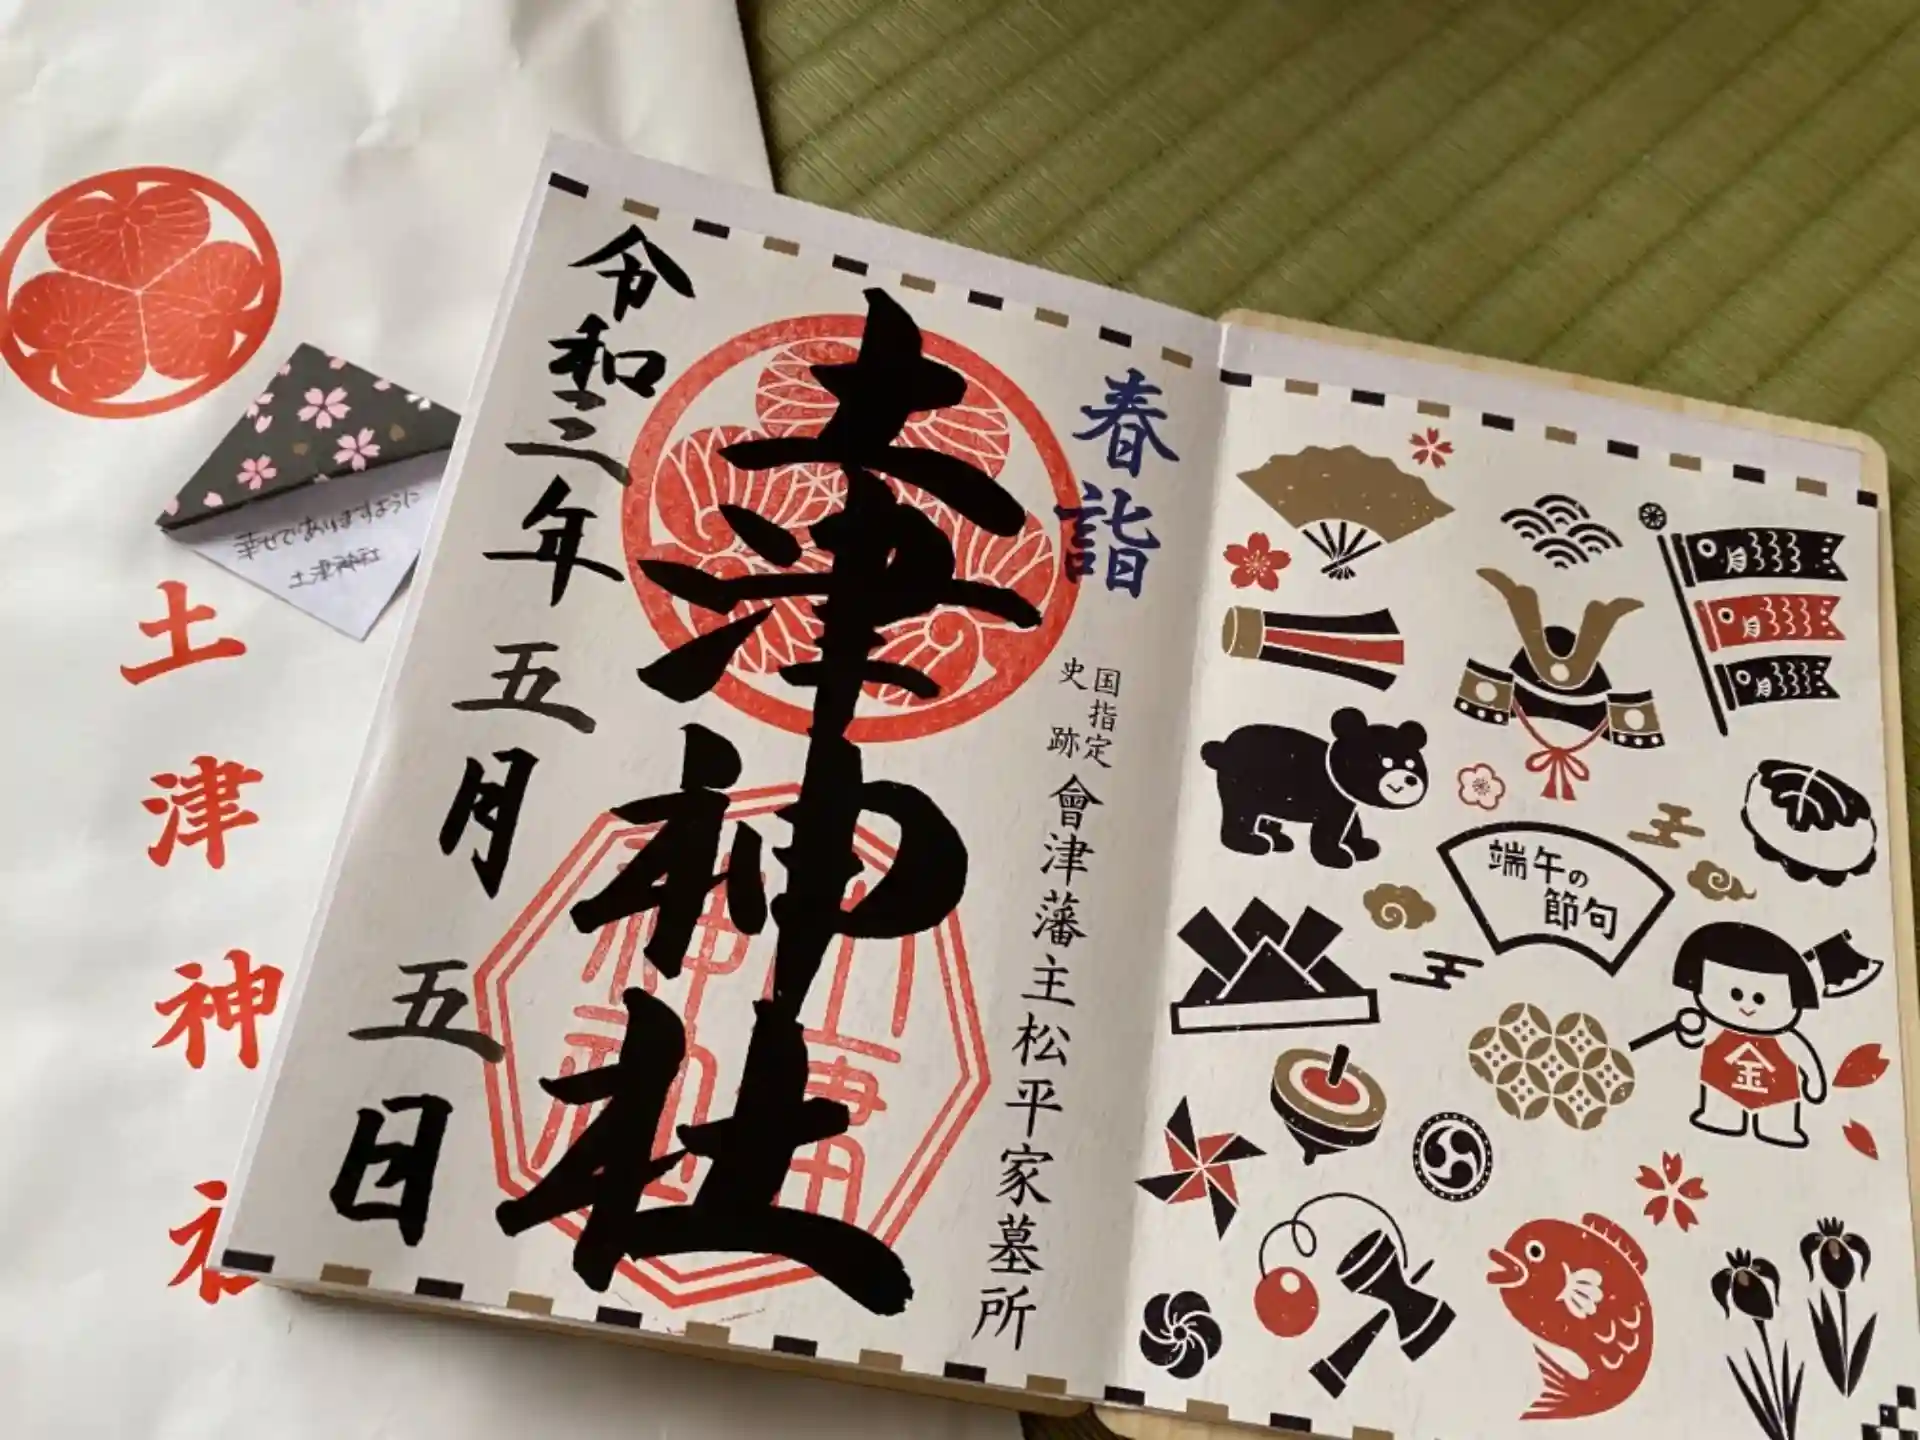 土津神社
幸せでありますように
土津神社
春詣
国指定
史跡
會津藩主松平家墓所
土津神社
令和三年五月五日
端午の
節句
金